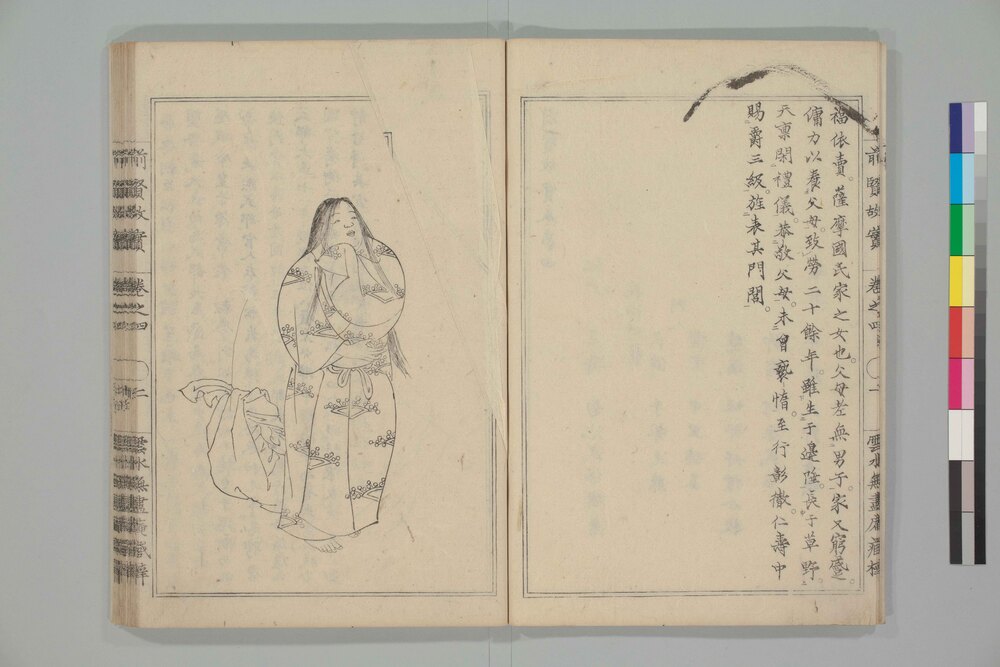 福依賣。薩摩國民家之女也。父母老無男子。家又窮。
傭力以養父母。致勞二十餘年。雖生于邊陲。長于草野。
天稟閑禮儀。恭敬父母。未曾褻惰。至行彭徹。仁壽中
賜爵三級。旌表其門閭。
前賢故實 卷之四 一 雲水無盡庵
前賢故實 卷之四 二 雲水無盡庵藏梓